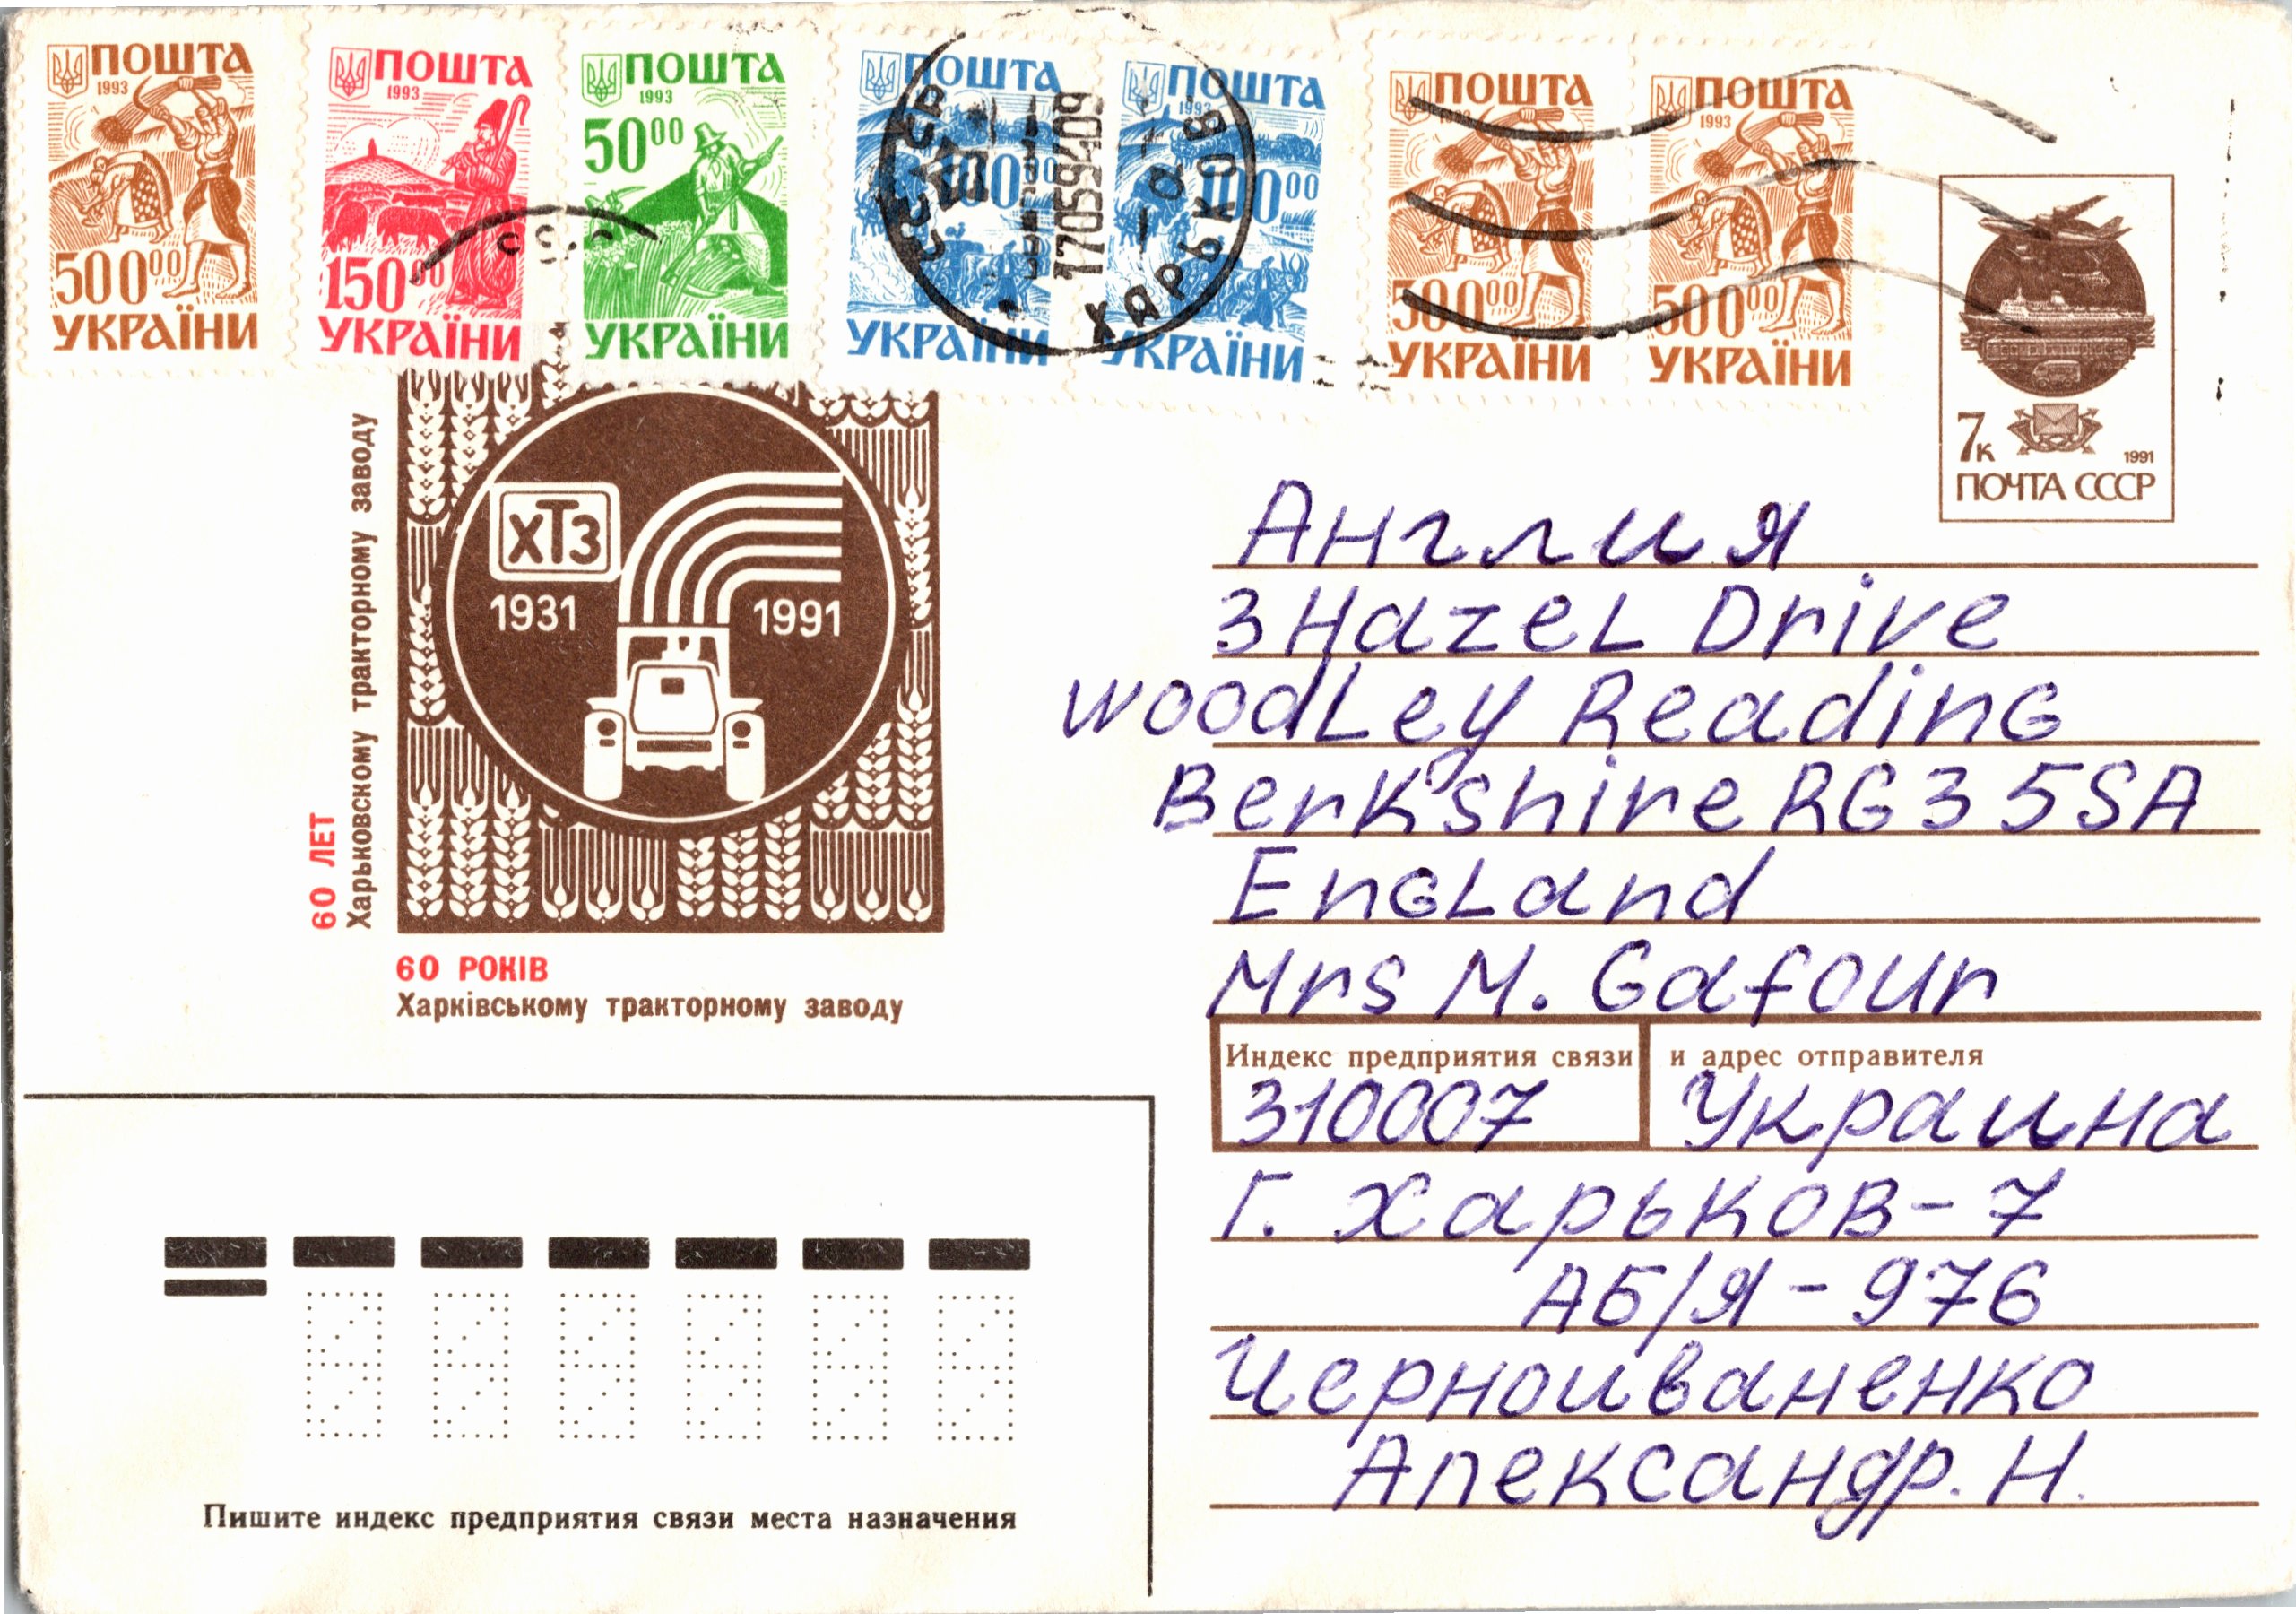 ПОШТА
1993
500⁰⁰
УКРАЇНИ
ПОШТА
1993
150⁰⁰
УКРАЇНИ
ПОШТА
1993
50⁰⁰
УКРАЇНИ
ПОШТА
100⁰⁰
УКРАЇНИ
ПОШТА
1993
100⁰⁰
УКРАЇНИ
ПОШТА
1993
500⁰⁰
УКРАЇНИ
ПОШТА
1993
500⁰⁰
УКРАЇНИ
СССР
17059409
ХАРЬКОВ
7к
1991
ПОЧТА СССР
60 ЛЕТ
Харьковскому тракторному заводу
ХТЗ
1931 1991
60 РОКІВ
Харківському тракторному заводу
Англия
3 Hazel Drive
Woodley Reading
Berkshire RG3 5SA
England
Mrs M. Gafour
Индекс предприятия связи и адрес отправителя
310007 Украина
Г. Харьков-7
АБ/Я-976
Черноиваненко
Александр. Н.
Пишите индекс предприятия связи места назначения